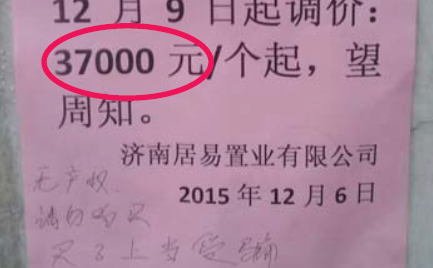 12 月 9 日起调价：
37000 元/个起，望
周知。
济南居易置业有限公司
2015 年 12 月 6 日
无产权
请勿购买
买了上当受骗